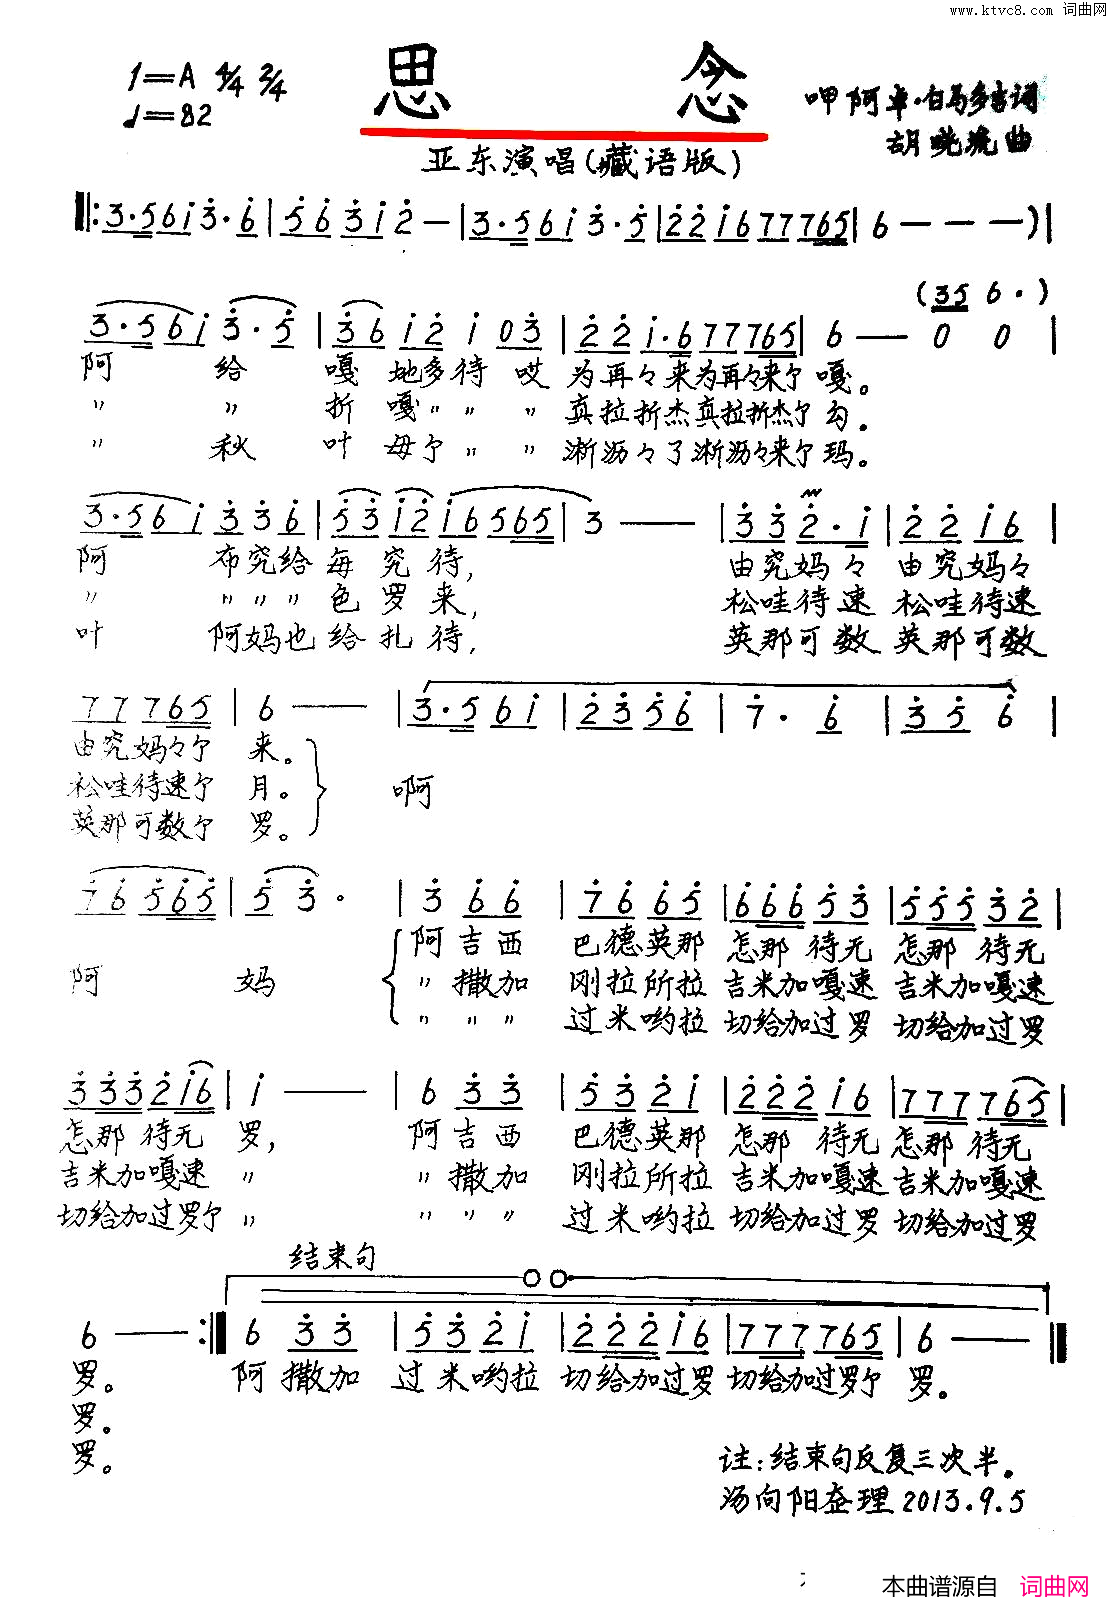 www.ktvc8.com 词曲网
1=A 4/4 2/4
思念
呷阿卓·白马多吉词
♩=82
胡晓流曲
亚东演唱(藏语版)
阿 给 嘎 地多待 哎 为再々来为再々来尔 嘎。
〃 〃 折 嘎〃 〃 〃 真拉折杰真拉折杰尔 勾。
〃 秋 叶 母尔 〃 〃 淅沥々了淅沥々来尔 玛。
阿 布究给 每 究 待, 由究妈々 由究妈々
〃 〃〃〃 色 罗 来, 松哇待速 松哇待速
叶 阿妈也 给 扎 待, 英那可数 英那可数
由究妈々尔 来。
松哇待速尔 月。 啊
英那可数尔 罗。
阿吉西 巴德英那 怎那 待无 怎那 待无
阿 妈 〃撒加 刚拉所拉 吉米加嘎速 吉米加嘎速
〃〃〃 过米哟拉 切给加过罗 切给加过罗
怎那 待无 罗, 阿吉西 巴德英那 怎那 待无 怎那 待无
吉米加嘎速 〃 〃撒加 刚拉所拉 吉米加嘎速 吉米加嘎速
切给加过罗尔 〃 〃〃〃 过米哟拉 切给加过罗 切给加过罗
结束句
罗。 阿 撒加 过米哟拉 切给加过罗 切给加过罗尔 罗。
罗。
罗。
注:结束句反复三次半。
汤向阳整理2013.9.5
本曲谱源自 词曲网